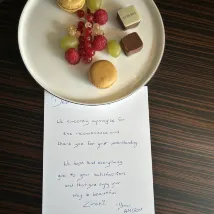 Dear
We sincerely apologise for
the inconvenience and
thank you for your understanding.
We hope that everything
goes to your satisfaction
and that you enjoy your
stay in beautiful